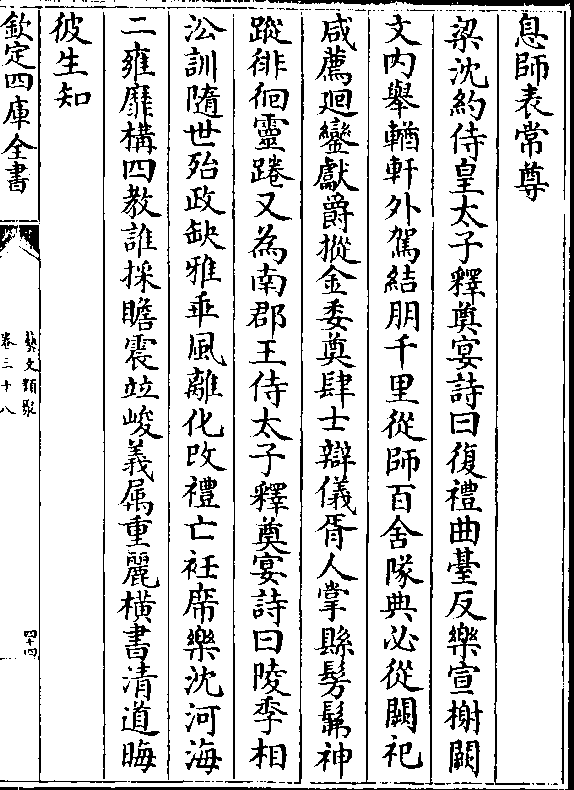 息師表常尊
梁沈約侍皇太子釋奠宴詩曰復禮曲臺反樂宣榭闕
文内舉輶軒外駕結朋千里從師百舍隊典必從闕祀
咸薦廻鑾獻爵摐金委奠肆士辯儀胥人掌縣髣髴神
蹤徘徊靈踡又為南郡王侍太子釋奠宴詩曰陵季相
㳂訓隨世殆政缺雅垂風離化改禮亡衽席樂沈河海
二雍靡構四教誰採瞻震竝峻義屬重麗横書清道晦
彼生知
欽定四庫全書
藝文類聚
卷三十八
四十四